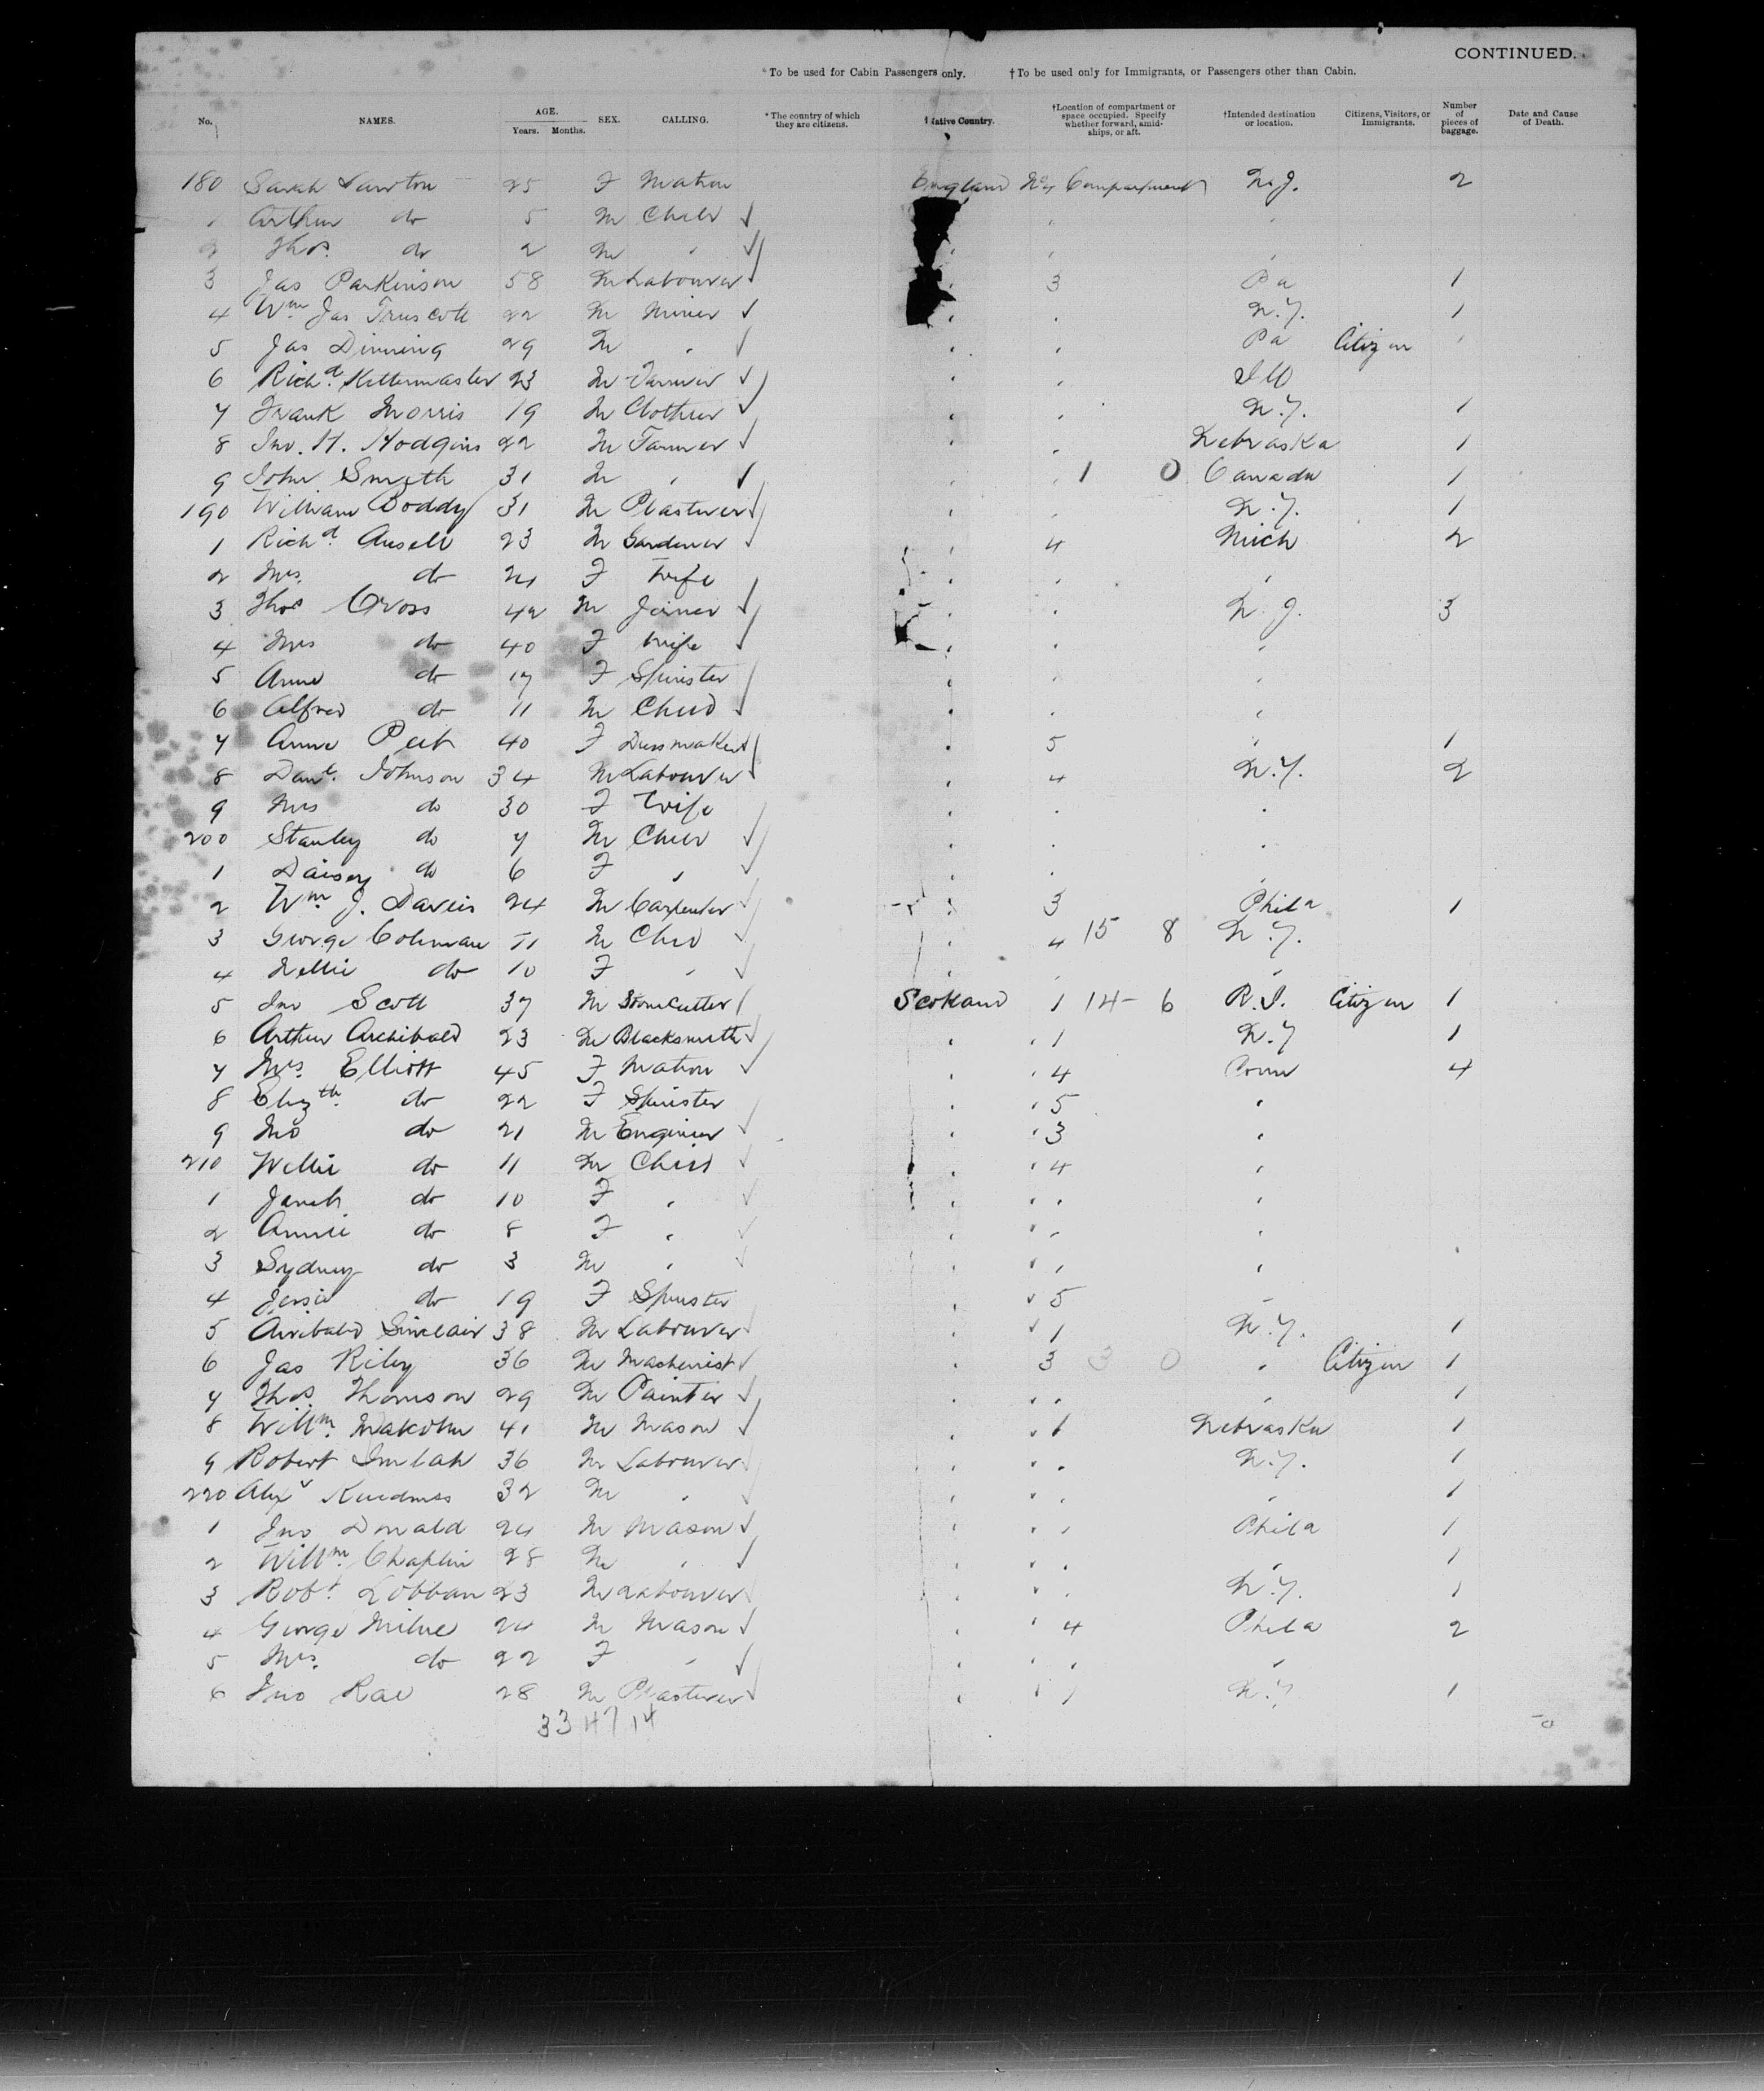 CONTINUED.
*To be used for Cabin Passengers only. †To be used only for Immigrants, or Passengers other than Cabin.
No. NAMES. AGE. Years. Months. SEX. CALLING. *The country of which they are citizens. Native Country. †Location of compartment or space occupied. Specify whether forward, amidships, or aft. †Intended destination or location. Citizens, Visitors, or Immigrants. Number of pieces of baggage. Date and Cause of Death.
180 Sarah 25 F Matron England No 4 Compartment N.J. 2
1 Arthur do 5 M Child "
2 Thos. do 2 M " "
3 Jas Parkinson 58 M Labourer " 3 Pa 1
4 Wm Jas Truscott 22 M Miner " " N.Y. 1
5 Jas Dinning 29 M " " " Pa Citizen "
6 Richd. Kettermaster 23 M Farmer " " Ill
7 Frank Morris 19 M Clothier " " N.Y. 1
8 Jno. H. Hodgins 22 M Farmer " " Nebraska 1
9 John Smyth 31 M " " " 1 0 Canada 1
190 William Boddy 31 M Plasterer " " N.Y. 1
1 Richd. Ansell 23 M Gardener " 4 Mich 2
2 Mrs. do 24 F Wife " " "
3 Thos Cross 42 M Joiner " " N.J. 3
4 Mrs do 40 F Wife " " "
5 Anne do 17 F Spinster " " "
6 Alfred do 11 M Child " " "
7 Anne 40 F Dressmaker " 5 " 1
8 Danl. Johnson 34 M Labourer " 4 N.Y. 2
9 Mrs do 30 F Wife " " "
200 Stanley do 7 M Child " " "
1 Daisey do 6 F " " "
2 Wm J. Davies 24 M Carpenter " 3 Phila 1
3 George Coleman 11 M Child " 4 15 8 N.Y.
4 Nellie do 10 F " " " "
5 Jno Scott 37 M Stonecutter Scotland 1 14- 6 R.I. Citizen 1
6 Arthur Archibald 23 M Blacksmith " " 1 N.Y 1
7 Mrs. Elliott 45 F Matron " " 4 Conn 4
8 Elizth. do 22 F Spinster " " 5 "
9 Jno do 21 M Engineer " " 3 "
210 Willie do 11 M Child " " 4 "
1 Janet do 10 F " " " " "
2 Annie do 8 F " " " " "
3 Sydney do 3 M " " " " "
4 Jessie do 19 F Spinster " " 5 "
5 Archibald Sinclair 38 M Labourer " " 1 N.Y. 1
6 Jas Riley 36 M Machinist " 3 3 0 " Citizen 1
7 Thos. Thomson 29 M Painter " " " " 1
8 Willm. 41 M Mason " " 1 Nebraska 1
9 Robert Imlah 36 M Labourer " " " N.Y. 1
220 Alexr 32 M " " " " " 1
1 Jno Donald 24 M Mason " " " Phila 1
2 Willm. Chaplin 28 M " " " " " 1
3 Robt. Lobban 23 M Labourer " " " N.Y. 1
4 George Milne 24 M Mason " " 4 Phila 2
5 Mrs. do 22 F " " " " "
6 Jno Rae 28 M Plasterer " " " N.Y 1
33 47 14